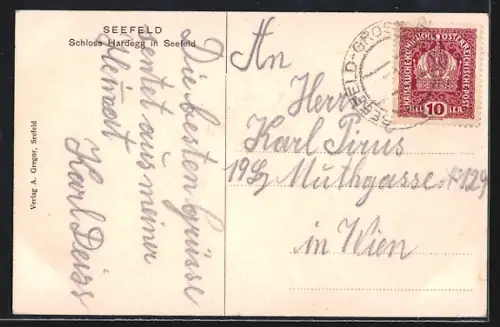 SEEFELD
Schloss Hardegg in Seefeld
Verlag A. Gregor, Seefeld
Die besten Grüsse
sendet aus meiner
Heimat
Karl Deiss
An
Herrn
Karl Pirus
Muthgasse № 129
in Wien
SEEFELD-GROSS
KAISERLICHE KÖNIGLICHE ÖSTERREICHISCHE POST
HELLER 10